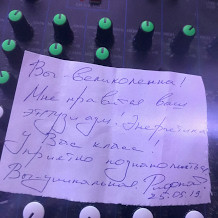 Вы - великолепна!
Мне нравится ваш
энтузиазм! Энергетика
у Вас класс!
приятно познакомиться
Вы - уникальная.
25.05.19